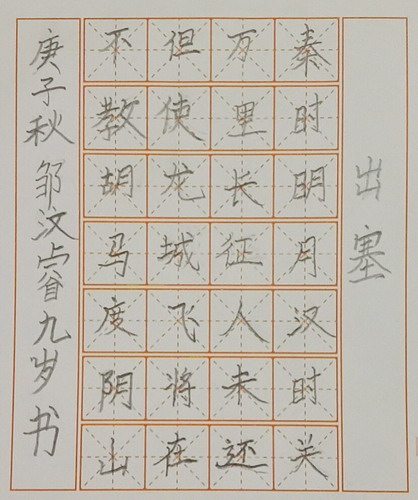 出塞
秦时明月汉时关
万里长征人未还
但使龙城飞将在
不教胡马度阴山
庚子秋邹汶睿九岁书